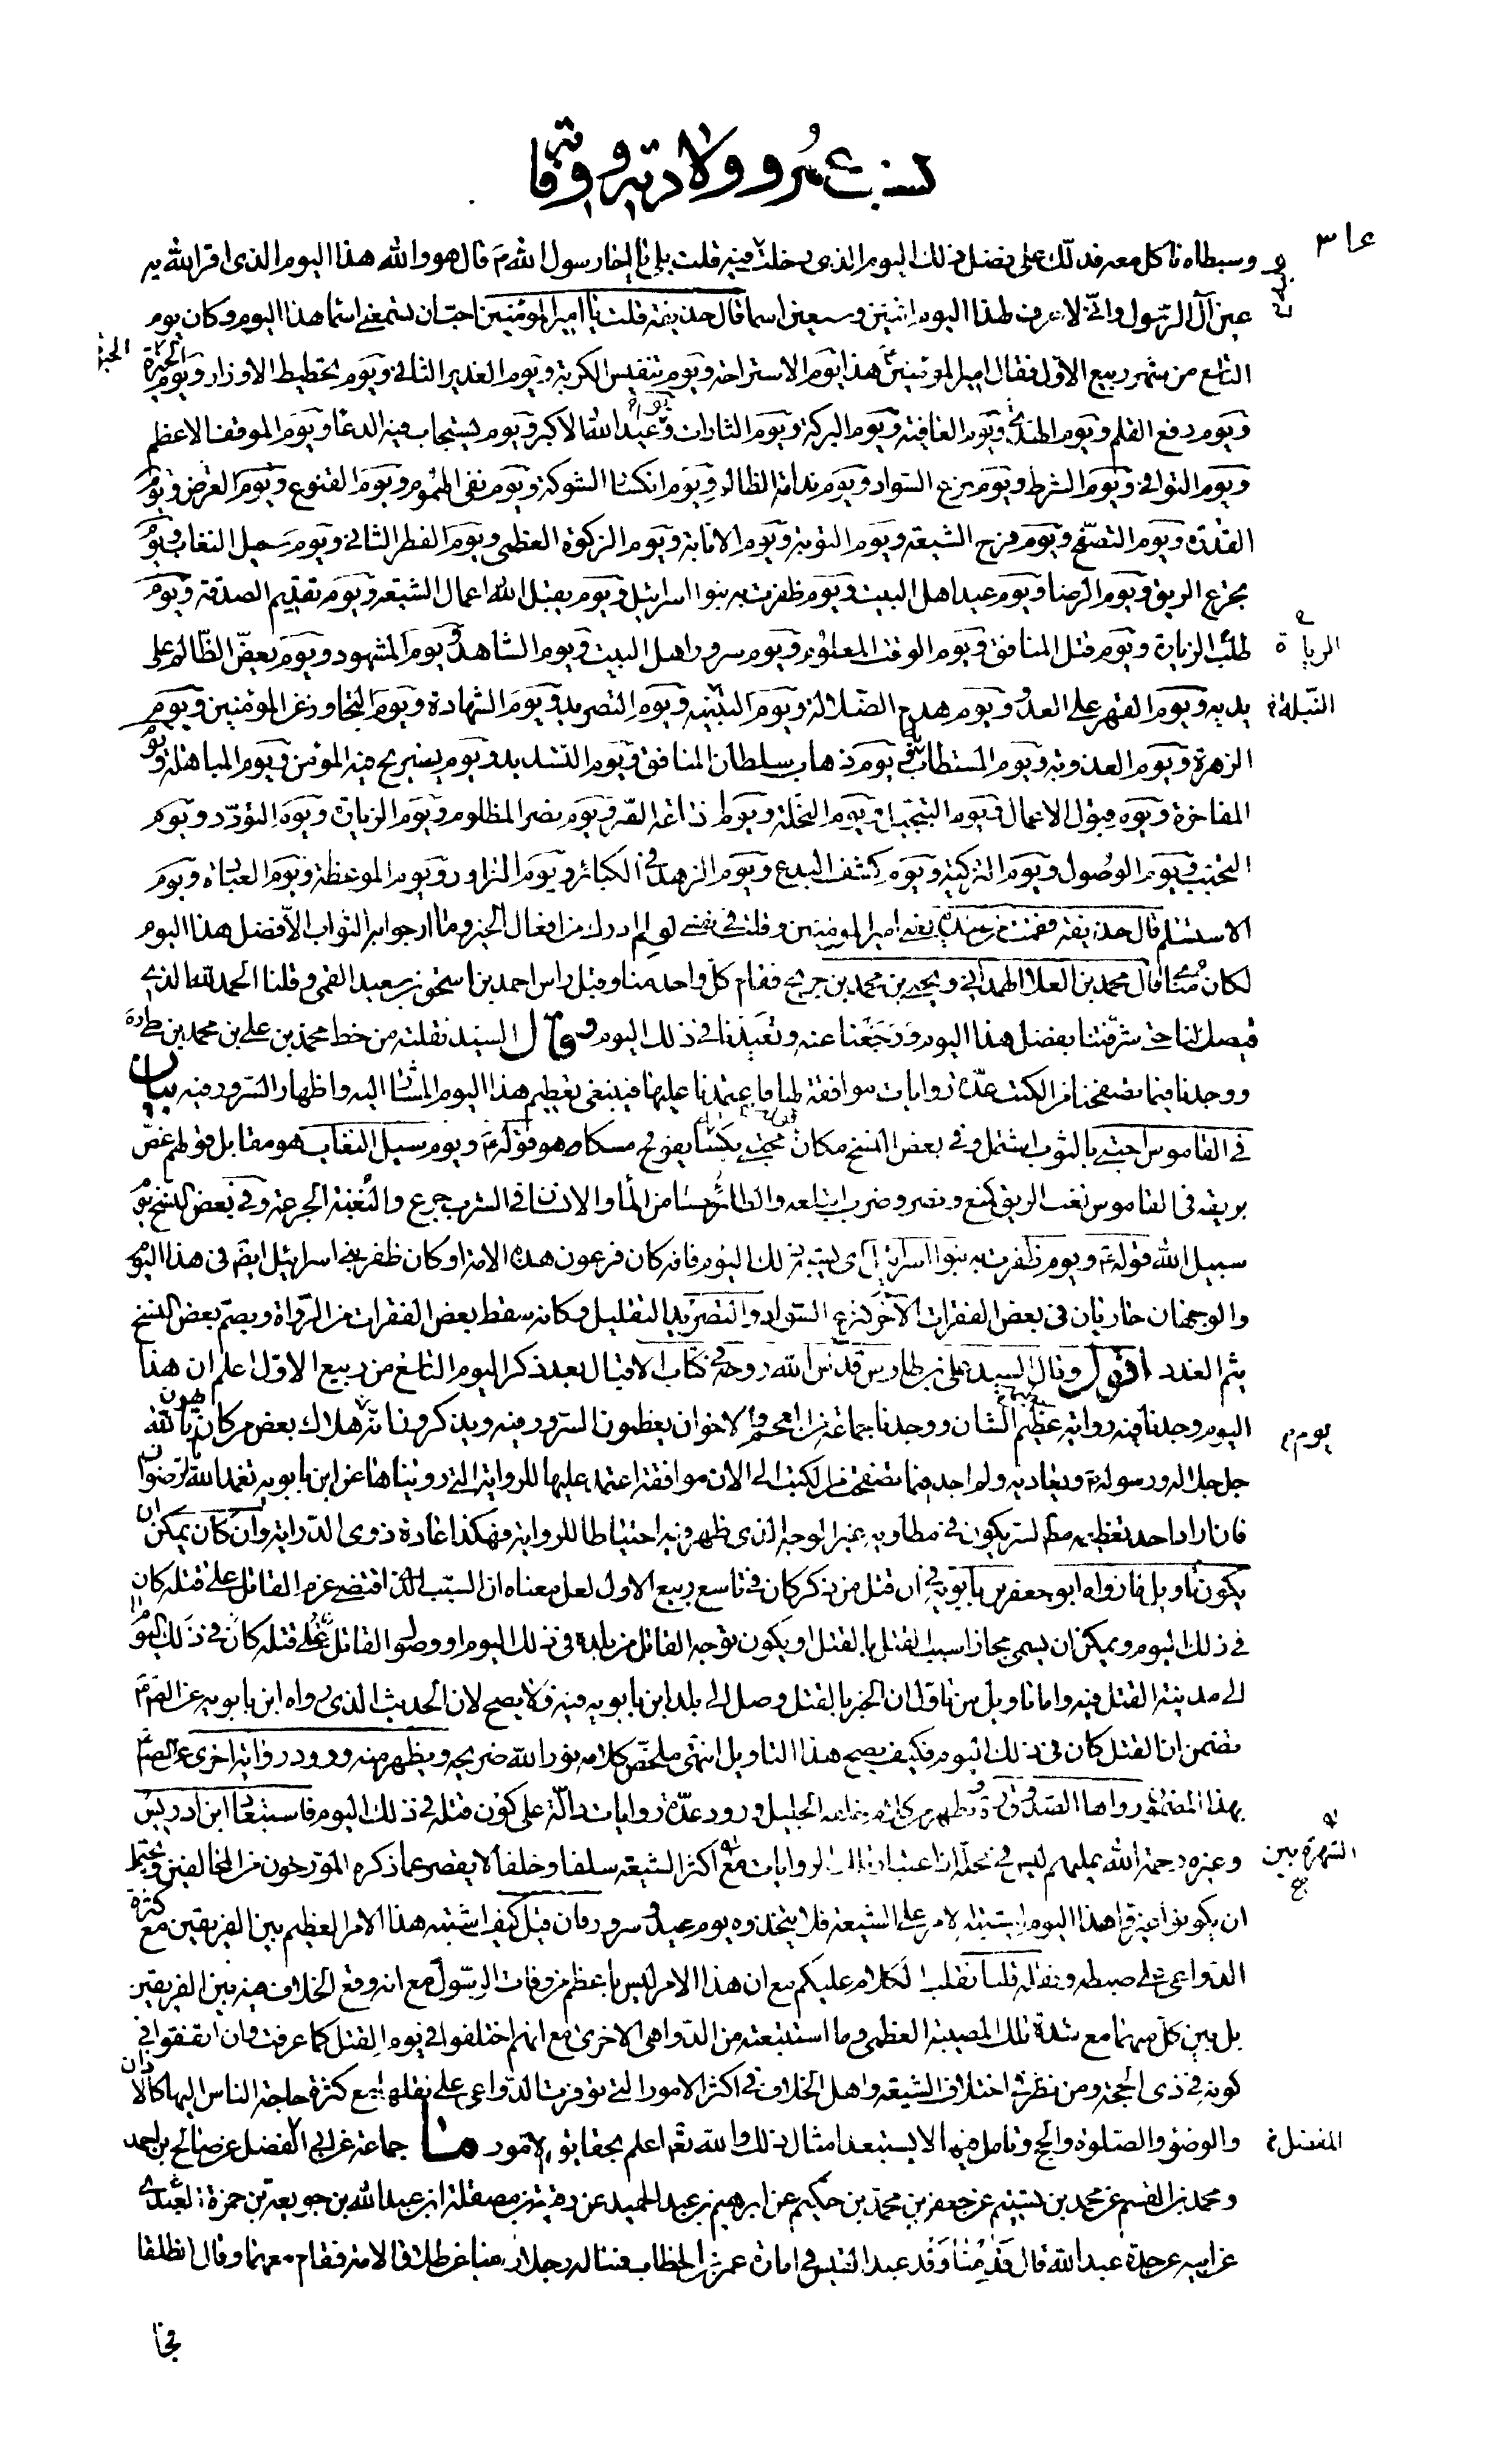 نسب عمر وولادته ووفاته
٣١٤
وسبطاه ناكل معه فدلّك على فضل ذلك اليوم الذى دخلت فيه قلت بلى يا اخا رسول الله ص قال هو والله هذا اليوم الذى اقر الله به
عين آل الرسول وانّى لاعرف لهذا اليوم اثنين وسبعين اسما قال حذيفة قلت يا امير المؤمنين احبّ ان تسمعنى اسماء هذا اليوم وكان يوم
التاسع من شهر ربيع الاول فقال امير المؤمنين ع هذا يوم الاستراحة ويوم تنفيس الكربة ويوم الغدير الثانى ويوم تحطيط الاوزار ويوم الخيرة
ويوم رفع القلم ويوم الهدى ويوم العافية ويوم البركة ويوم الثارات وعيد الله الاكبر ويوم يستجاب فيه الدعا ويوم الموقف الاعظم
ويوم التوافى ويوم الشرط ويوم نزع السواد ويوم ندامة الظالم ويوم انكسار الشوكة ويوم نفى الهموم ويوم القنوع ويوم العرض ويوم
القدرة ويوم التصفح ويوم فرح الشيعة ويوم التوبة ويوم الانابة ويوم الزكوة العظمى ويوم الفطر الثانى ويوم سيل النغاب ويوم
تجرع الريق ويوم الرضا ويوم عيد اهل البيت ويوم ظفرت به بنوا اسرائيل ويوم يقبل الله اعمال الشيعة ويوم تقديم الصدقة ويوم
طلب الزيارة ويوم قتل المنافق ويوم الوقت المعلوم ويوم سرور اهل البيت ويوم الشاهد ويوم المشهود ويوم يعض الظالم على
يديه ويوم القهر على العدو ويوم هدم الضلالة ويوم التنبيه ويوم التصريد ويوم الشهادة ويوم التجاوز عن المؤمنين ويوم
الزهرة ويوم العذوبة ويوم المستطاب به ويوم ذهاب سلطان المنافق ويوم التسديد ويوم يستريح فيه المؤمن ويوم المباهلة ويوم
المفاخرة ويوم قبول الاعمال ويوم التبجيل ويوم النحلة ويوم اذاعة السر ويوم نصر المظلوم ويوم الزيارة ويوم التودد ويوم
التحبب ويوم الوصول ويوم التزكية ويوم كشف البدع ويوم الزهد فى الكبائر ويوم التزاور ويوم الموعظة ويوم العبادة ويوم
الاستسلام قال حذيفة فقمت من عنده يعنى امير المؤمنين وقلت فى نفسى لو لم ادرك من افعال الخير وما ارجو به الثواب الا فضل هذا اليوم
لكان مناى قال محمد بن العلا الهمدانى ويحيى بن محمد بن جريح فقام كل واحد منا وقبل راس احمد بن اسحق بن سعيد القمى وقلنا الحمد لله الذى
قيضك لنا حتى شرفتنا بفضل هذا اليوم ورجعنا عنه وتعيدنا فى ذلك اليوم وقال السيد نقلته من خط محمد بن على بن محمد بن طى ره
ووجدنا فيما تصفحنا من الكتب عدة روايات موافقة لها فاعتمدنا عليها فينبغى تعظيم هذا اليوم المشار اليه واظهار السرور فيه بيان
فى القاموس احتبى بالثوب اشتمل وفى بعض النسخ مكان محتبى بكساء يفوح مسكا وهو قوله ع ويوم سيل النغاب هو مقابل قولهم غص
بريقه فى القاموس نغب الريق كمنع ونصر وضرب ابتلعه والطائر حسا من الماء والانسان فى الشرب جرع والنغبة الجرعة وفى بعض النسخ يوم
سبيل الله قوله ع ويوم ظفرت به بنوا اسرائيل اى يشبه ذلك اليوم فانه كان فرعون هذه الامة او كان ظفر بنى اسرائيل ايضا فى هذا اليوم
والوجهان جاريان فى بعض الفقرات الآخر كنزع السواد والتصريد التقليل وكانه سقط بعض الفقرات من الرواة وبضم بعض النسخ
يتم العدد اقول وقال السيد على بن طاوس قدس الله روحه فى كتاب الاقبال بعد ذكر اليوم التاسع من ربيع الاول اعلم ان هذا
اليوم وجدنا فيه رواية عظيم الشان ووجدنا جماعة من العجم والاخوان يعظمون السرور فيه ويذكرون انه يوم هلاك بعض من كان يهون بالله
جل جلاله ورسوله ص ويعاديه ولم اجد فيما تصفحت من الكتب الى الان موافقة اعتمد عليها للرواية التى رويناها عن ابن بابويه تغمده الله بالرضوان
فان اراد احد تعظيمه مطلقا لسر يكون فى مطاويه غير الوجه الذى ظهر فيه احتياطا للرواية فهكذا عادة ذوى الدراية وان كان يمكن ان
يكون تاويل ما رواه ابو جعفر بن بابويه فى ان قتل من ذكر كان فى تاسع ربيع الاول لعل معناه ان السبب الذى اقتضى عزم القاتل على قتله كان
فى ذلك اليوم ويمكن ان يسمى مجازا سبب القتل بالقتل او يكون توجه القاتل من بلده فى ذلك اليوم او وصول القاتل على قتله كان فى ذلك اليوم
الى مدينة القتل فيه واما تاويل من تاول ان الخبر بالقتل وصل الى بلد ابن بابويه فيه فلا يصح لان الحديث الذى رواه ابن بابويه عن الصادق ع
تضمن ان القتل كان فى ذلك اليوم فكيف يصح هذا التاويل انتهى ملخص كلامه نور الله ضريحه ويظهر منه ورود رواية اخرى عن الصادق ع
بهذا المضمون رواها الصدوق ره ويظهر من كلام خلفه الجليل ورود عدة روايات دالة على كون قتله فى ذلك اليوم فاستبعاد ابن ادريس
وغيره رحمة الله عليهم ليس فى محله اذ اعتبار تلك الروايات مع اكثر الشيعة سلفا وخلفا لا يقصر عما ذكره المؤرخون من المخالفين ويحتمل
ان يكونوا غيروا هذا اليوم ليشتبه الامر على الشيعة فلا يتخذوه يوم عيد وسرور فان قيل كيف اشتبه هذا الامر العظيم بين الفريقين مع كثرة
الدواعى على ضبطه ونقله قلنا نقلب الكلام عليكم مع ان هذا الامر ليس باعظم من وفات الرسول مع انه وقع الخلاف فيه بين الفريقين
بل بين كل منهما مع شدة تلك المصيبة العظمى وما استتبعته من الدواهى الاخرى مع انهم اختلفوا فى يوم القتل كما عرفت وان اتفقوا فى
كونه فى ذى الحجة ومن نظر فى اختلاف الشيعة واهل الخلاف فى اكثر الامور التى توفرت الدواعى على نقلها مع كثرة حاجة الناس اليها كالاذان
والوضوء والصلوة والحج وتامل فيها لا يستبعد امثال ذلك والله تعالى اعلم بحقايق الامور ما جماعة عن ابى الفضل عن صالح بن احمد
ومحمد بن القسم عن محمد بن تسنيم عن جعفر بن محمد بن حكيم عن ابرهيم بن عبد الحميد عن رقبة بن مصقلة بن عبد الله بن جويعة بن حمزة العبدى
عن ابيه عن جده عبد الله قال قدمنا وفد عبد القيس فى امارة عمر بن الخطاب فساله رجلان منا عن طلاق الامة فقام معهما وقال انطلقا
فجا
الزيارة
النبلة خ
يوم م
الشهرة بين
المفضل خ